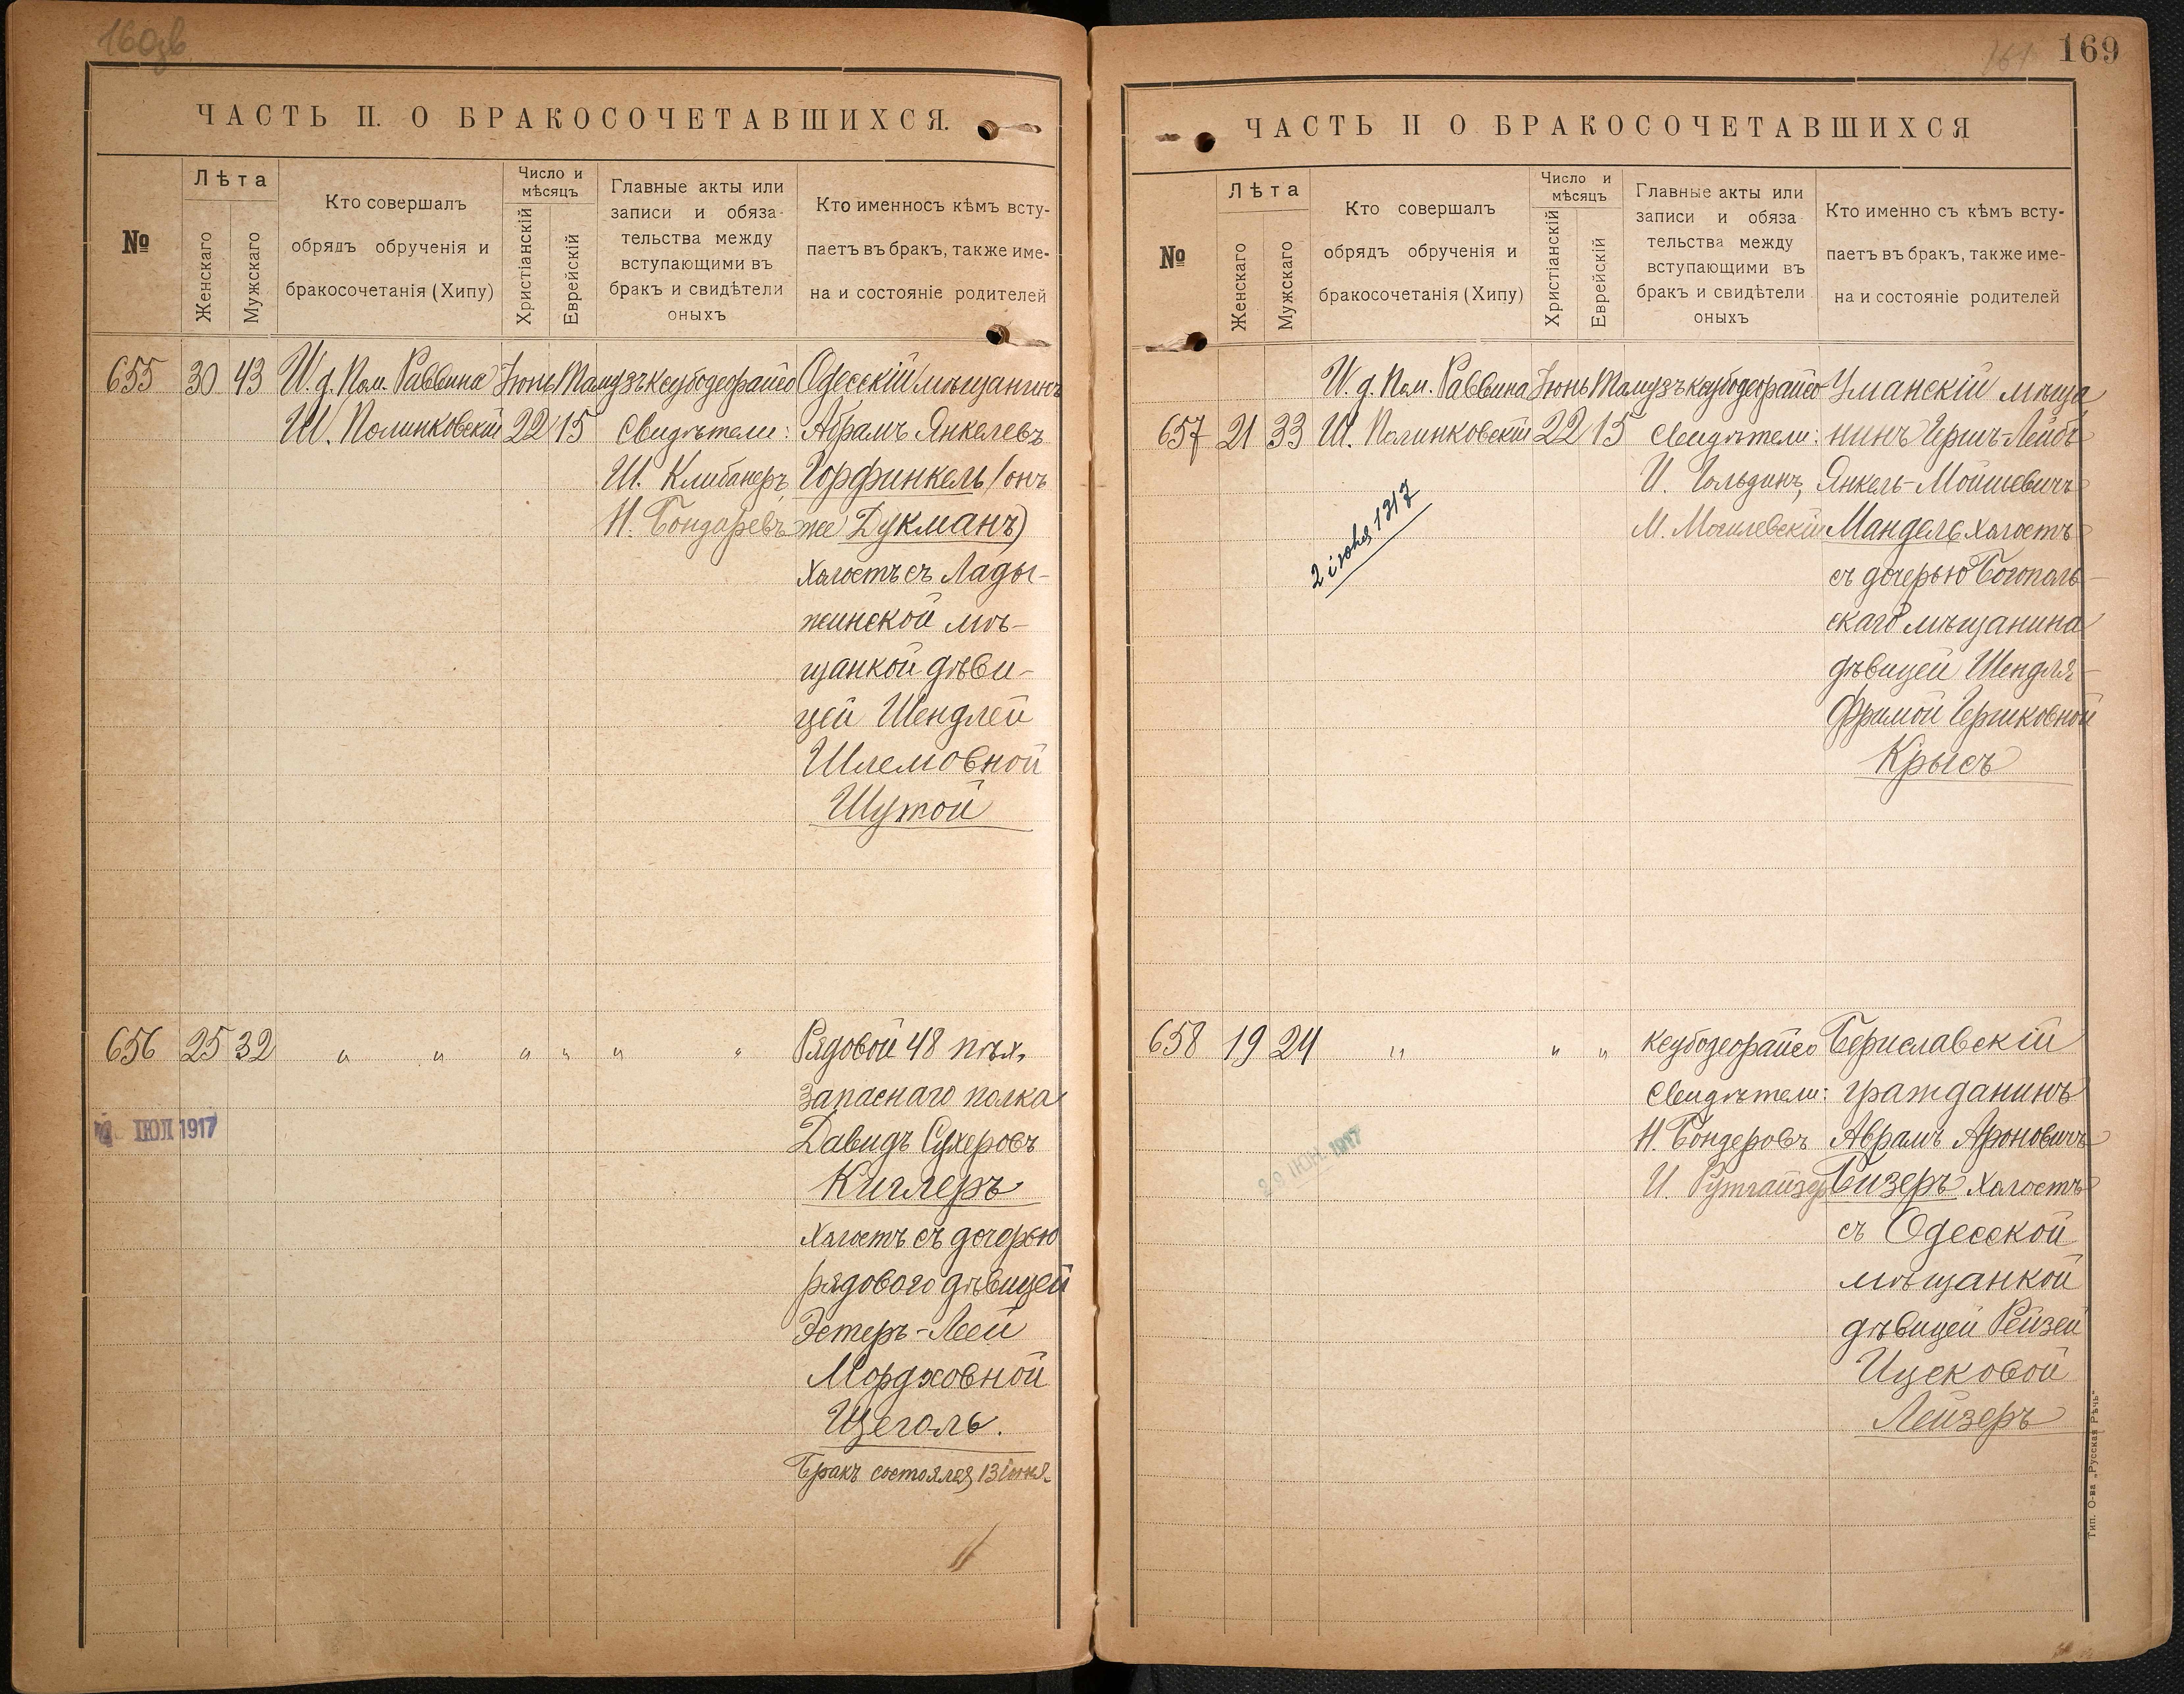 160об
ЧАСТЬ II. О БРАКОСОЧЕТАВШИХСЯ.
№
Лѣта
Женскаго
Мужскаго
Кто совершалъ
обрядъ обрученія и
бракосочетанія (Хипу)
Число и
мѣсяцъ
Христіанскій
Еврейскій
Главные акты или
записи и обяза-
тельства между
вступающими въ
бракъ и свидѣтели
оныхъ
Кто именносъ кѣмъ всту-
паетъ въ бракъ, также име-
на и состояніе родителей
655 30 43 И. д. Пом. Раввина Іюнь Тамузъ ксубодеорайсо Одесскій мѣщанинъ
Ш. Полинковскій 22 15 Свидѣтели: Абрамъ Янкелевъ
Ш. Клибанеръ, Горфинкель (онъ
Н. Бондаревъ же Дукманъ)
Холостъ съ Лады-
жинской мѣ-
щанкой дѣви-
цей Шендлей
Шлемовной
Шутой
656 25 32 " " " " " " Рядовой 48 пѣх.
Запаснаго полка
ІЮЛ 1917
Давидъ Сухеровъ
Киглеръ
Холостъ съ дочерью
рядового дѣвицей
Эстеръ-Леей
Мордховной
Щеголь.
Бракъ состоялся 13 іюня.
161
169
ЧАСТЬ II О БРАКОСОЧЕТАВШИХСЯ
№
Лѣта
Женскаго
Мужскаго
Кто совершалъ
обрядъ обрученія и
бракосочетанія (Хипу)
Число и
мѣсяцъ
Христіанскій
Еврейскій
Главные акты или
записи и обяза
тельства между
вступающими въ
бракъ и свидѣтели
оныхъ
Кто именно съ кѣмъ всту-
паетъ въ бракъ, также име-
на и состояніе родителей
И. д. Пом. Раввина Іюнь Тамузъ ксубодеорайсо Уманскій мѣща
657 21 33 Ш. Полинковскій 22 15 Свидѣтели: нинъ Гершъ-Лейбъ
И. Гольдинъ, Янкель-Мойшевичъ
М. Могилевскій Мандель холостъ
2 іюня 1917
съ дочерью Богополь-
скаго мѣщанина
дѣвицей Шендля-
Фримой Гершковной
Крысъ
658 19 24 " " " ксубодеорайсо Бериславскій
Свидѣтели: гражданинъ
Н. Бондеровъ Аврамъ Ароновичъ
29 ІЮН. 1917
И. Рутгайзер Бизеръ холостъ
съ Одесской
мѣщанкой
дѣвицей Рейзей
Ицековой
Лейзеръ
Тип. О-ва „Русская Рѣчь"